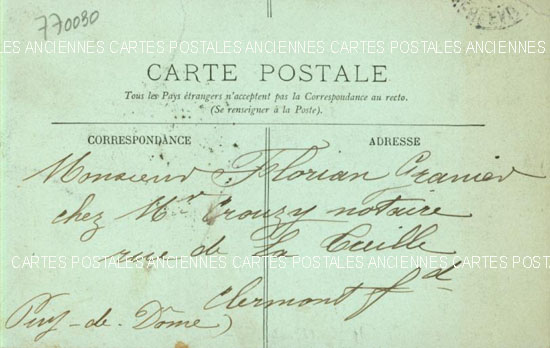 770030
ANCIENNES CARTES POSTALES ANCIENNES CARTES POSTALES ANCIENNES CARTES POSTALES
CARTE POSTALE
Tous les Pays étrangers n'acceptent pas la Correspondance au recto.
(Se renseigner à la Poste).
CORRESPONDANCE
ADRESSE
Monsieur Florian Granier
chez Mr Crouzy notaire
rue de La Treille
CARTES POSTALES ANCIENNES CARTES POSTALES ANCIENNES CARTES POSTALES ANCIENNES
Clermont fd
Puy-de-Dôme)